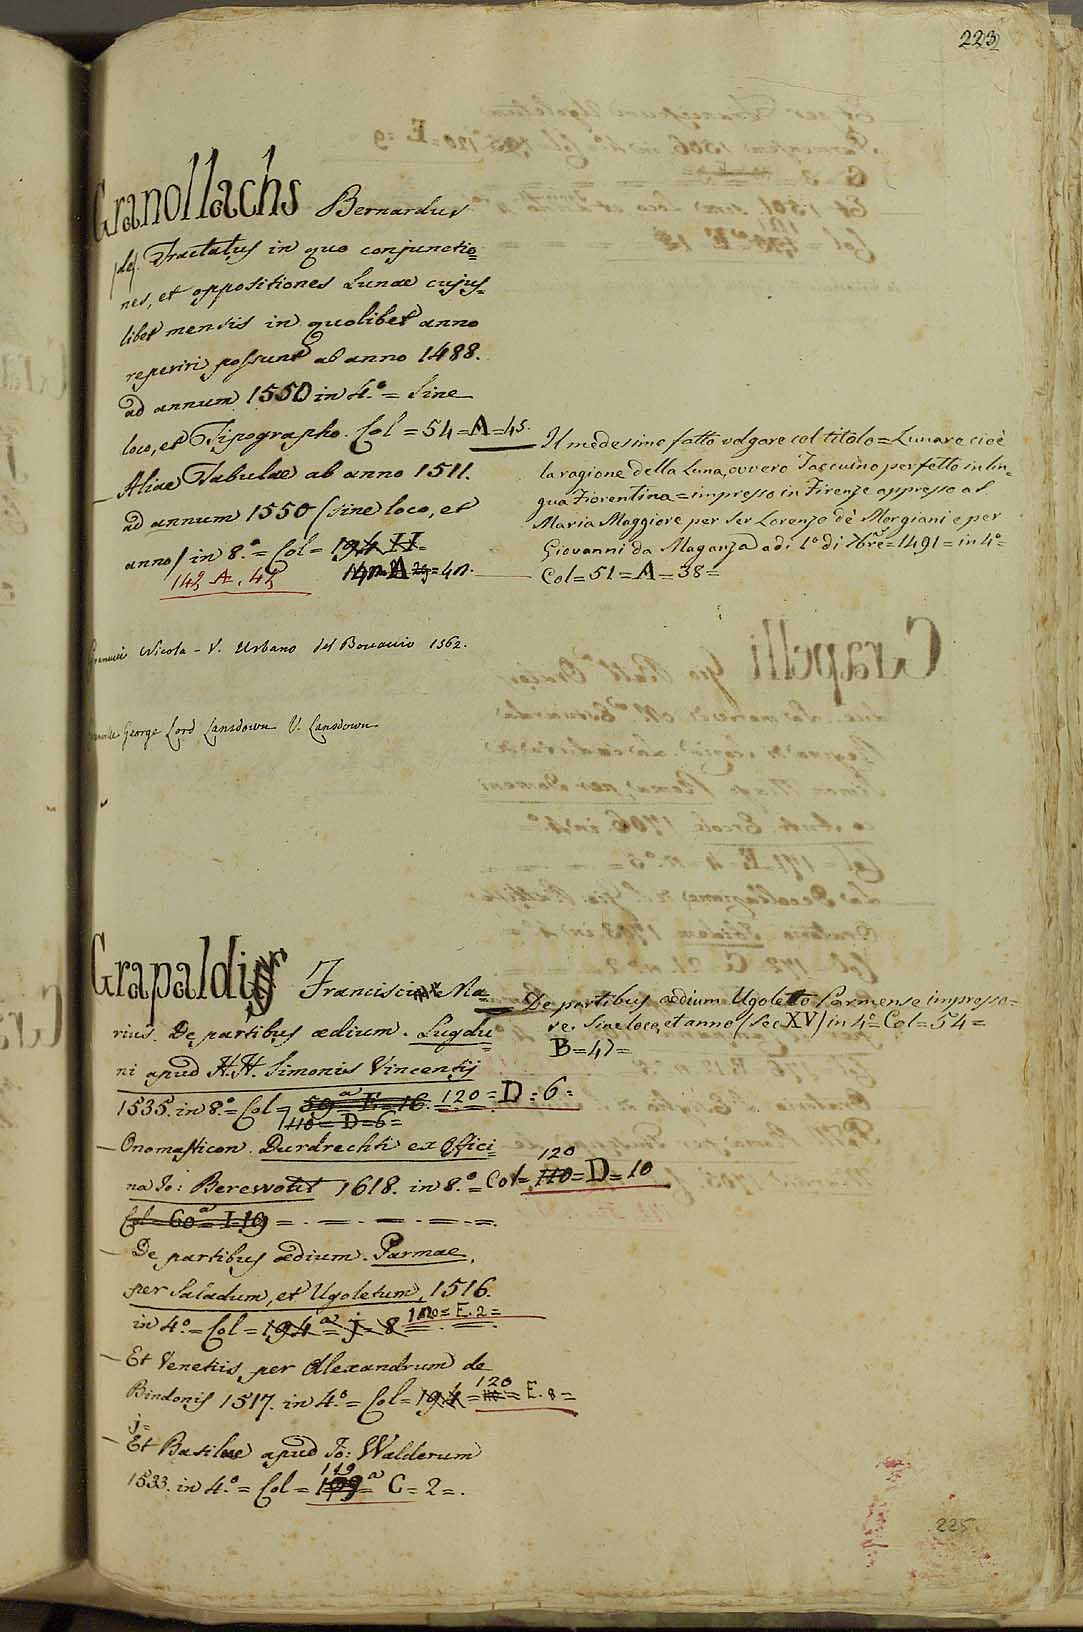 223
Granollachs Bernardus
de/. Tractatus in quo conjunctio=
nes, et oppositiones Lunae cujus=
libet mensis in quolibet anno
reperiri possunt ab anno 1488.
ad annum 1550 in 4.° = Sine
loco, et Tipographo. Col = 54 = A = 45.
— Aliae Tabulae ab anno 1511.
ad annum 1550 (sine loco, et
anno/ in 8.° = Col = 194 II =
142 A. 42
Il medesimo fatto volgare col titolo = Lunare cioè
la ragione della Luna, ovvero Taccuino perfetto in lin=
gua Fiorentina = impresso in Firenze appresso a S.
Maria Maggiore per Ser Lorenzo de Morgiani e per
Giovanni da Maganza adi 1.° di 7bre = 1491 = in 4.° =
Col = 51 = A = 38 =
Granucci Nicola - V. Urbano del Bocaccio 1562.
George Lord Lansdown V. Lansdown
Grapaldius Franciscus Ma=
rius. De partibus aedium. Lugdu=
ni apud H.H. Simonis Vincentij
1535. in 8.° = Col = 59 a = E = 16. 120 = D = 6 =
110 = D = 6 =
— Onomasticon. Durdrechti ex Offici=
na Jo: Berewout 1618. in 8.° = Col = 110 = D = 10
120
Col = 60 a = I. 19 = . — . — . — . = .
— De partibus aedium. Parmae,
per Saladum, et Ugoletum, 1516.
in 4.° = Col = 194 a = j = 8 120 = E. 2 =
— Et Venetiis per Alexandrum de
Bindonis 1517. in 4.° = Col = 194 = 120 = E. 8 =
j =
— Et Basileae apud Jo: Walderum
1533. in 4.° = Col = 119 a C = 2 = .
De partibus aedium Ugoleto Parmense impresso=
re. Sine loco, et anno (Sec XV) in 4.° Col = 54 =
B = 47 =
225